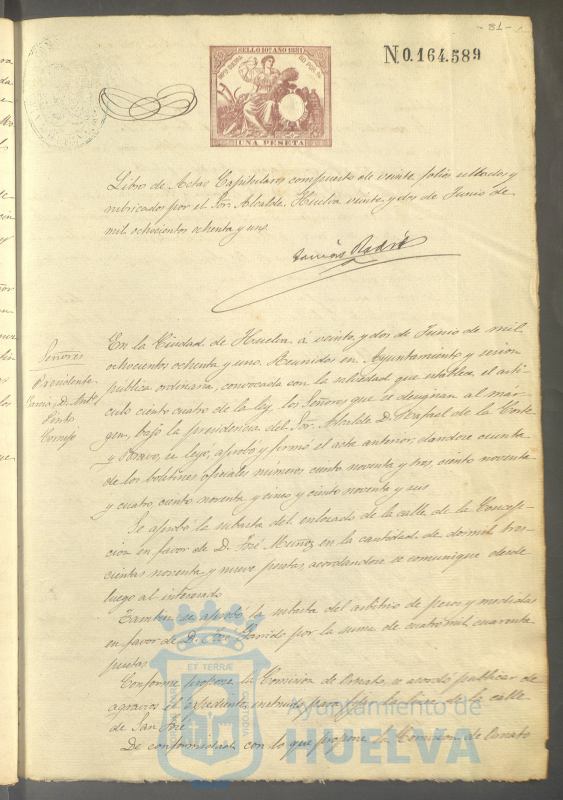 - 81 -
SELLO 10º AÑO 1881
UNA PESETA
N 0.164.589
Libro de Actas Capitulares compuesto de veinte folios sellados y
rubricados por el Sor. Alcalde. Huelva veinte y dos de Junio de
mil ochocientos ochenta y uno.
Señores
Presidente
García, D. Antº
Pinto
Cornejo
En la Ciudad de Huelva á veinte y dos de Junio de mil
ochocientos ochenta y uno. Reunidos en Ayuntamiento y sesion
publica ordinaria, convocada con la antiedad que establece el arti-
culo ciento cuatro de la ley, los Señores que se designan al mar-
gen, bajo la presidencia del Sor. Alcalde D. Rafael de la Corte
y Bravo, se leyó, aprobó y firmó el acta anterior, dandose cuenta
de los boletines oficiales numeros ciento noventa y tres, ciento noventa
y cuatro ciento noventa y cinco y ciento noventa y seis
Se aprobó la subasta del enlozado de la calle de la Concep-
cion en favor de D. José Muñoz en la cantidad de dos mil tres-
cientas noventa y nueve pesetas acordandose se comunique desde
luego al interesado
Tambien se aprobó la subasta del arbitrio de pesos y medidas
en favor de D. José Garrido por la suma de cuatro mil cuarenta
pesetas
Conforme propone la Comision de Ornato, se acordó publicar de
agravios el expediente instruido para fijar la linea de la calle
de San José
De conformidad con lo que propone la Comision de Ornato
ET TERRÆ
Ayuntamiento de
HUELVA